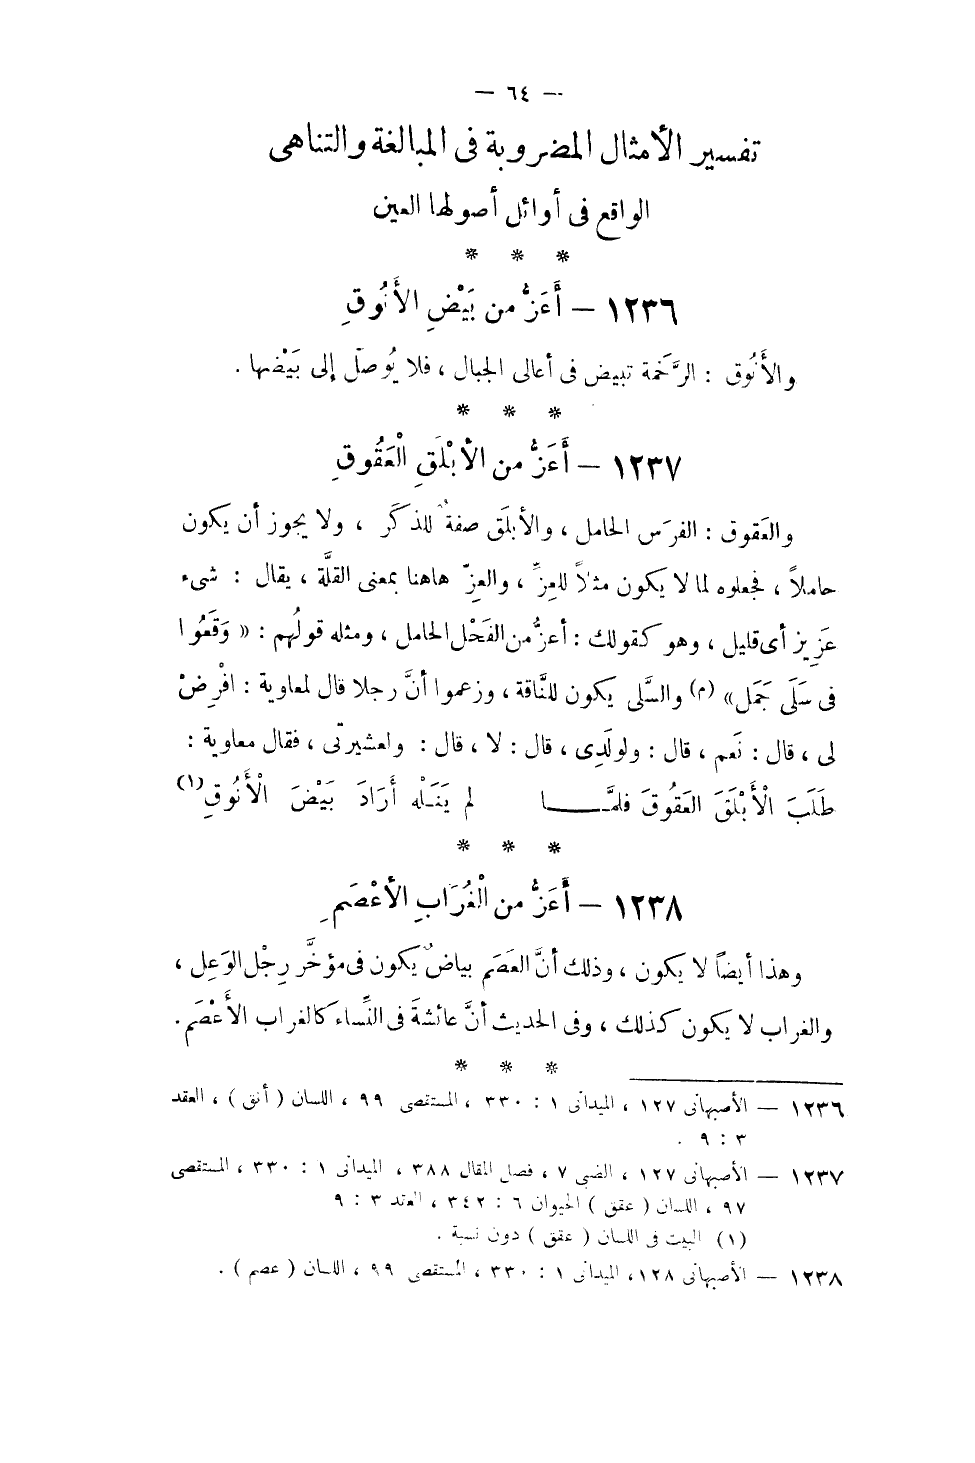 — ٦٤ —
تفسير الأمثال المضروبة فى المبالغة والتناهى
الواقع فى أوائل أصولها العين
* * *
١٢٣٦ – أَعَزُّ من بَيْضِ الأَنُوقِ
والأَنُوق : الرَّخَمة تبيض فى أعالى الجبال ، فلا يُوصَل إلى بَيْضها .
* * *
١٢٣٧ – أَعَزُّ من الأبْلَقِ الْعَقُوقِ
والعَقوق : الفرَس الحامل ، والأبلَق صفةٌ للذكَر ، ولا يجوز أن يكون
حاملاً ، فجعلوه لما لا يكون مثلاً للعِزِّ ، والعِزّ هاهنا بمعنى القلَّة ، يقال : شىء
عَزِيز أى قليل ، وهو كقولك : أعزُّ من الفَحْل الحامل ، ومثله قولُهم : « وَقَعُوا
فى سَلَى جَمَل » (م) والسَّلى يكون للنَّاقة ، وزعموا أنَّ رجلا قال لمعاوية : افْرِضْ
لى ، قال : نَعم ، قال : ولولَدِى ، قال : لا ، قال : ولعشيرتى ، فقال معاوية :
طَلَبَ الْأَبْلَقَ العَقُوقَ فلمَّـــا لم يَنَلْه أَرَادَ بَيْضَ الْأَنُوقِ (١)
* * *
١٢٣٨ – أَعَزُّ من الْغُرَابِ الأعْصَمِ
وهذا أيضًا لا يكون ، وذلك أنَّ العَصَم بياضٌ يكون فى مؤخَّر رِجْل الوَعِل ،
والغراب لا يكون كذلك ، وفى الحديث أنَّ عائشةَ فى النِّساء كالغراب الأَعْصَم .
* * *
١٢٣٦ — الأصبهانى ١٢٧ ، الميدانى ١ : ٣٣٠ ، المستقصى ٩٩ ، اللسان ( أنق ) ، العقد
٣ : ٩ .
١٢٣٧ — الأصبهانى ١٢٧ ، الضبى ٧ ، فصل المقال ٣٨٨ ، الميدانى ١ : ٣٣٠ ، المستقصى
٩٧ ، اللسان ( عقق ) الحيوان ٦ : ٣٤٢ ، العقد ٣ : ٩
(١) البيت فى اللسان ( عقق ) دون نسبة .
١٢٣٨ — الأصبهانى ١٢٨ ، الميدانى ١ : ٣٣٠ ، المستقصى ٩٩ ، اللسان ( عصم ) .